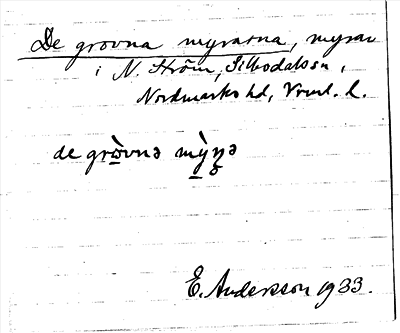 De grovna myrarna, myrar
i N. Ström, Silbodals sn,
Nordmarks hd, Vrml. l.
de grò̱vnə mỳ̱ŋ̨ə
E. Andersson 1933.